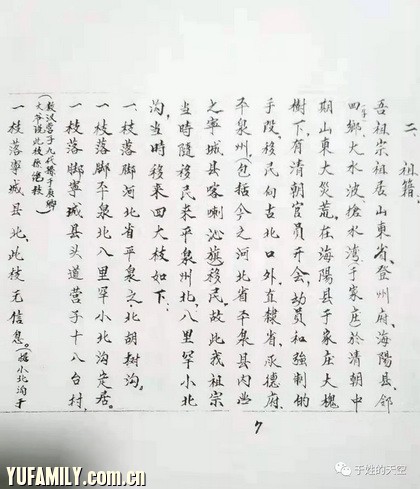 二、祖籍、
吾祖宗祖居山東省、登州府、海陽县、邻
四鄉、大水波、檢水灣、于家庄、於清朝中
期山東大災荒、在海陽县于家庄大槐
樹下、有清朝官員开会、幼員和強制的
手段、移民向古北口外、直隸省、承德府、
平泉州、(包括今之河北省平泉县内些
之寧城县喀喇沁旗移民。故此我祖宗
当時隨移民来平泉州北、八里罕小北
沟、当時移来四大枝如下：
一、枝落脚河北省平泉之北胡树沟。
一枝落脚平泉北八里罕小北沟定居。
一枝落脚寧城县头道营子十八台村、
(敖汉营子九代
大爷说此枝徐绝枝
一枝落寧城县北、此枝无信息。(据小北沟于
7
于姓的天空
YUFAMILY.com.cn